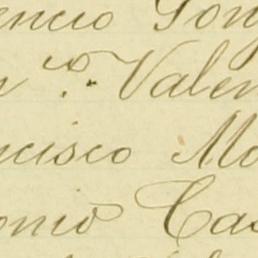 encio Gonz
n.co Valen
ncisco Mo
onio Cas